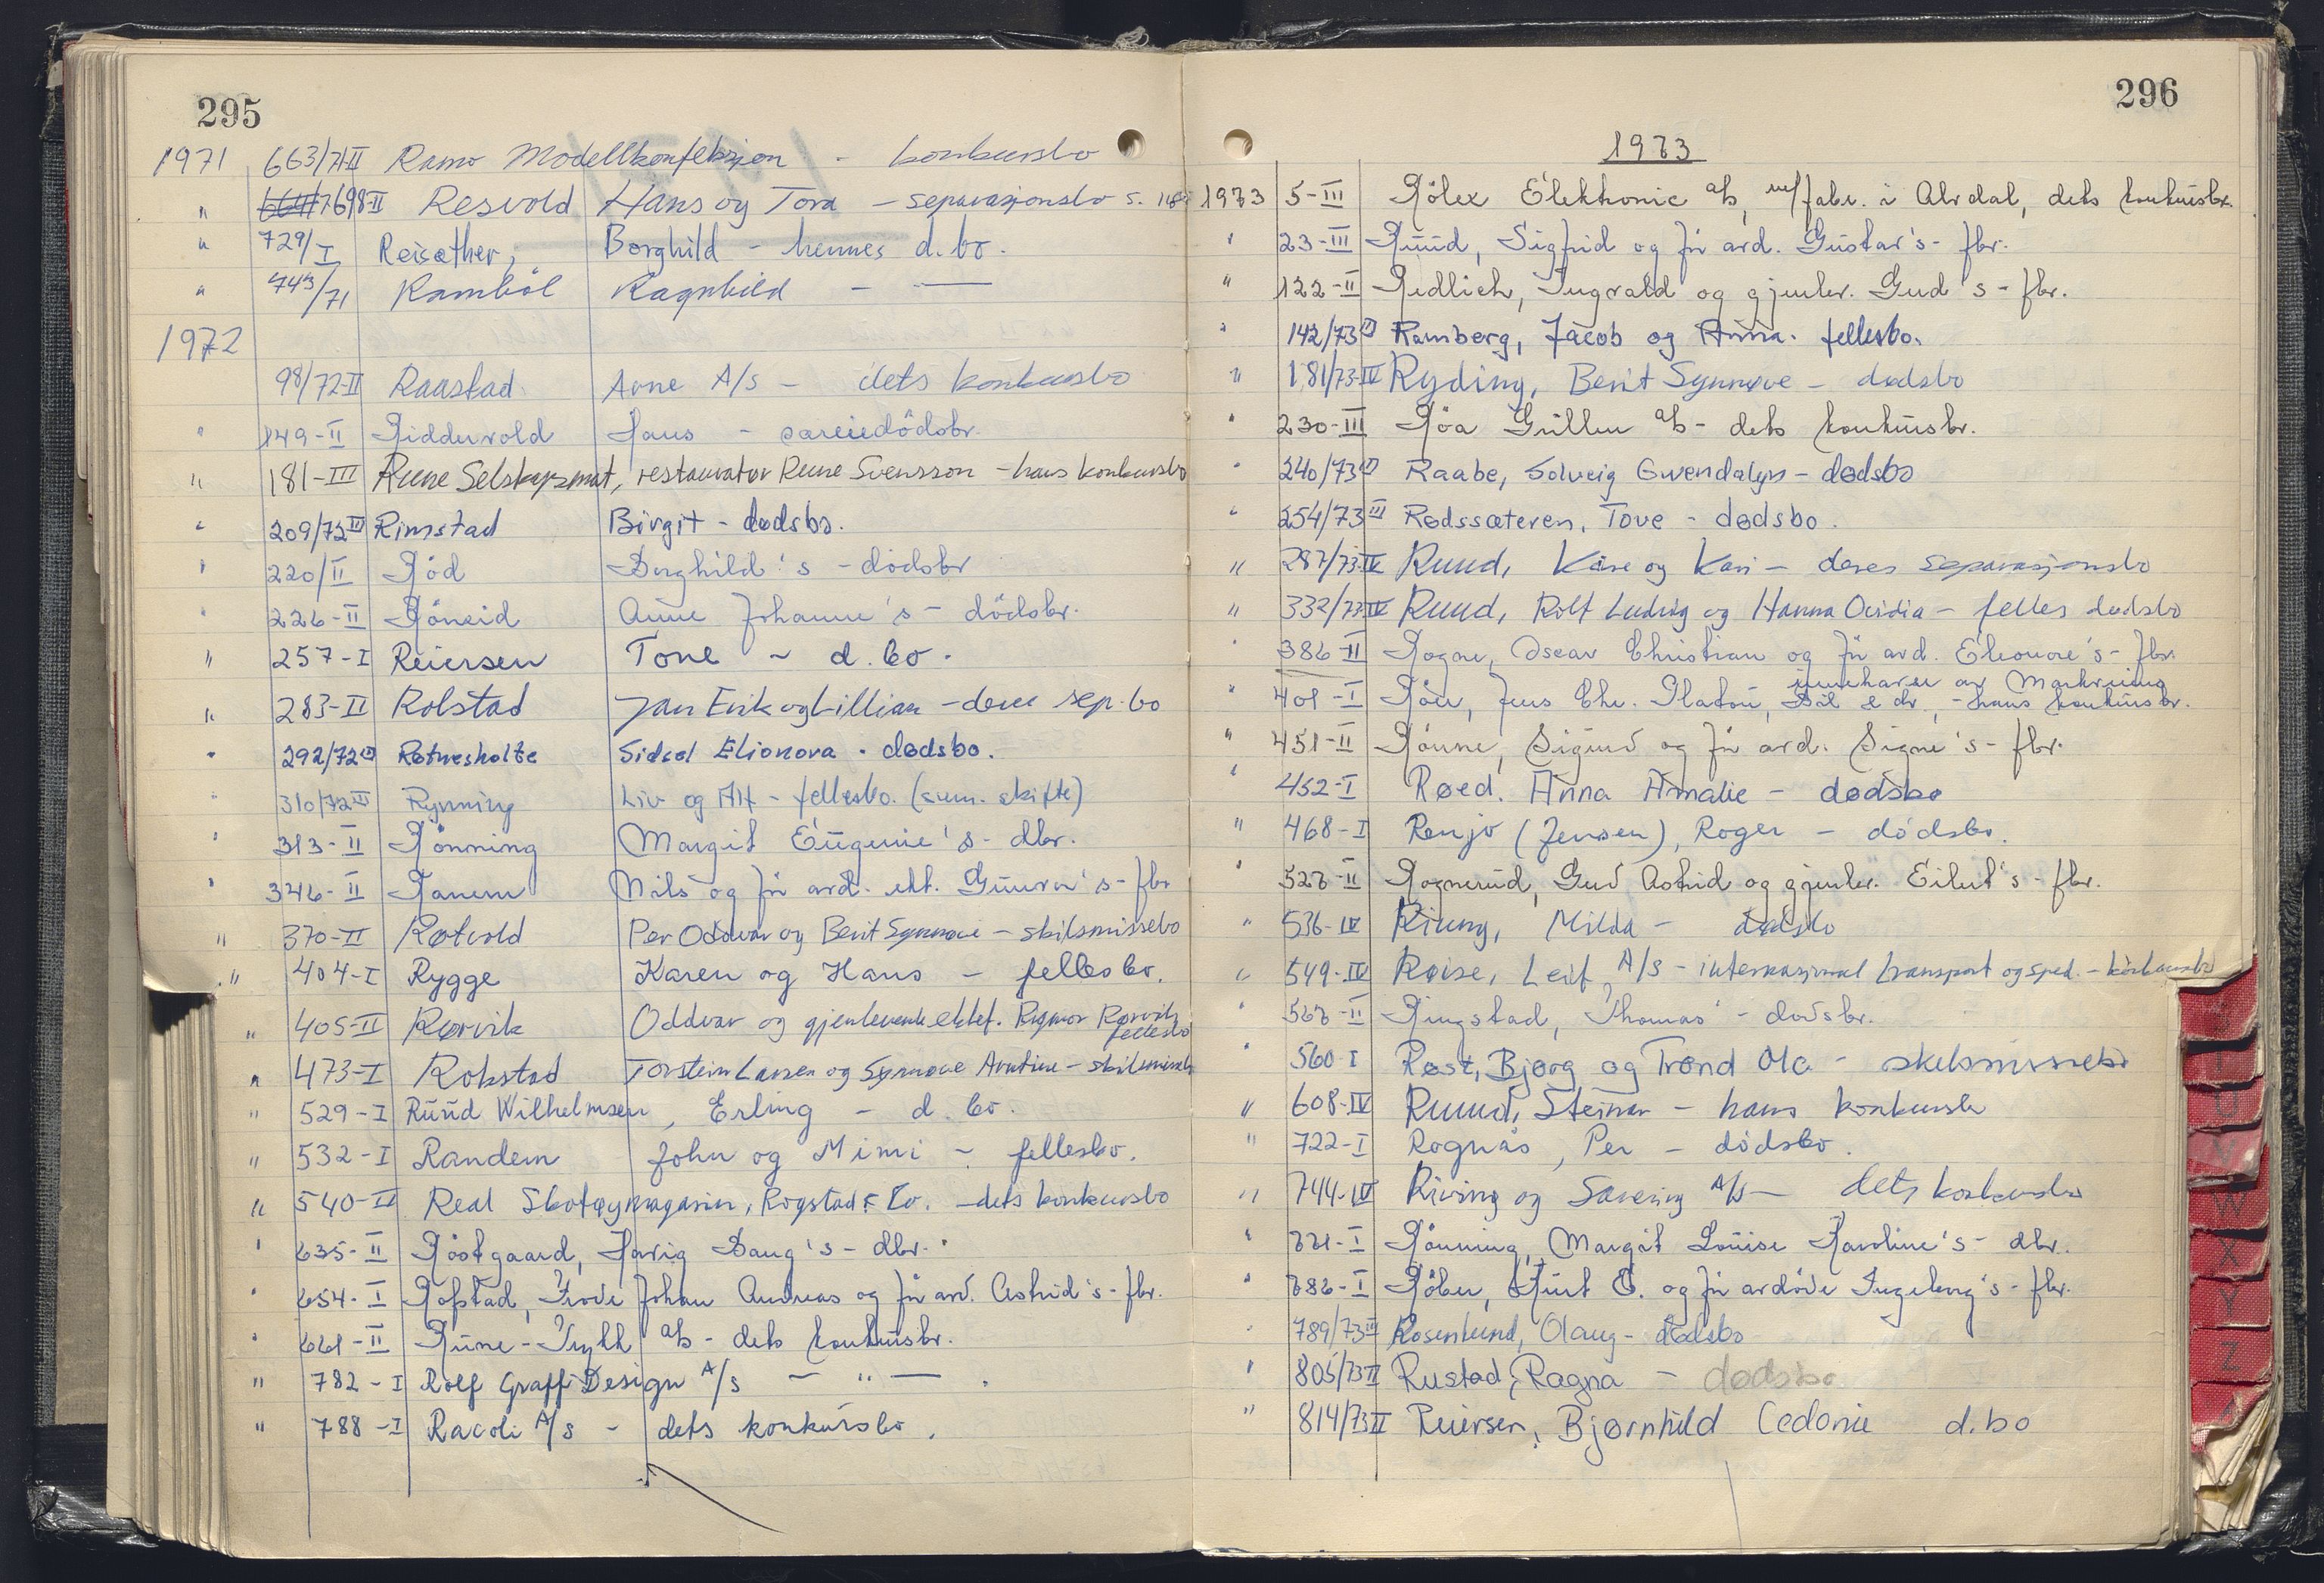 295
1971 663/71-II Ramo Modellkonfeksjon - konkursbo
" 698-II Resvold Hans og Tora - separasjonsbo
" 729/I Reisæther, Borghild - hennes d.bo.
" 743/71 Ramböl Ragnhild - —
1972
98/72-II Raastad Arne A/S - dets konkursbo
" 149-II Riddervold Hans -
" 181-III Rune Selskapsmat, restauratør Rune Svensson - hans konkursbo
" 209/72 III Rimstad Birgit - dødsbo.
" 220/II Röd Borghild's - dödsbr
" 226-II Röneid Anne Johanne's - dödsbr.
" 257-I Reiersen Tone - d.bo.
" 283-II Rolstad Jan Erik og Lillian - deres sep.bo
" 292/72 Røtnesholte Sidsel Elionora - dødsbo.
" 310/72 III Rynning Liv og Alf - fellesbo. (sum. skifte)
" 313-II Rönning Margit Eugenie's - dbr.
" 346-II Ranem Nils og fru avd. ekt. Guvra's - fbr
" 370-II Røtvold Per Oddvar og Berit Synnøve - skilsmissebo
" 404-I Rygge Karen og Hans - fellesbo.
" 405-II Rørvik Oddvar og gjenlevende ektef. Rigmor Rørvik
fellesbo
" 473-I Rokstad Torstein Larsen og Synnøve
" 529-I Ruud Wilhelmsen, Erling - d.bo.
" 532-I Randem John og Mimi - fellesbo.
" 540-II Real Skotøymagasin, Rogstad & Co. - dets konkursbo
" 635-II Röstgaard, Harig Bang's - dbr.
" 654-I Rofstad, Frode Johan Andreas og fru avd. Astrid's - fbr.
" 661-II Rune-Trykk a/s - dets konkursbr.
" 782-I Rolf Graff Design A/s - " —.
" 788-I Racoli A/s - dets konkursbo.
296
1973
1973 5-III Rölex Elektronic a/s, m/fabr. i Alvdal, dets konkursbr.
" 23-III Ruud, Sigfrid og fru avd. Gustav's - fbr.
" 122-II Redlich, Ingvald og gjenlev. Gud's - fbr.
" 142/73 Ramberg, Jacob og Anna. fellesbo.
" 181/73-IV Ryding, Berit Synnøve - dødsbo
" 230-III Röa Grillen a/s - dets konkursbr.
" 240/73 Raabe, Solveig Gwendalyn - dødsbo
" 254/73 III Rødssæteren, Tove - dødsbo.
" 287/73-IV Ruud, Kåre og Kari - deres separasjonsbo
" 332/73-IV Ruud, Rolf Ludvig og Hanna Ovidia - felles dødsbo
" 386-II Rogne, Oscar Christian og fru avd. Eleonore's - fbr.
innehaver av Markveiens
" 401-I Röer, Jens Chr. Platou, - hans konkursbr.
" 451-II Rönne, Sigurd og fru avd. Signe's - fbr.
" 452-I Røed. Anna Amalie - dødsbo
" 468-I Renjo (Jensen), Roger - dödsbo.
" 528-II Rognerud, Gud Astrid og gjenlev. Eilert's - fbr.
" 536-IV Riung, Milda - dødsbo
" 549-IV Røise, Leif, A/S - internasjonal transport og sped. - konkursbo
" 568-II Ringstad, Thomas' - dødsbr.
" 560-I Røst, Bjørg og Trond Ola - skilsmissebo
" 608-IV Ruud, Steinar - hans konkursbo
" 722-I Rognås, Per - dödsbo.
" 744-IV Riving og Sanering A/S - dets konkursbo
" 781-I Rönning, Margit Louise Karoline's - dbr.
" 786-I Röber, Kurt O. og fru avdöde Ingeborg's - fbr.
" 789/73 III Rosenlund, Olaug - dødsbo
" 805/73 II Rustad, Ragna - dødsbo
" 814/73 II Reiersen, Bjørnhild Cedonie d.bo
W
X
Y
Z